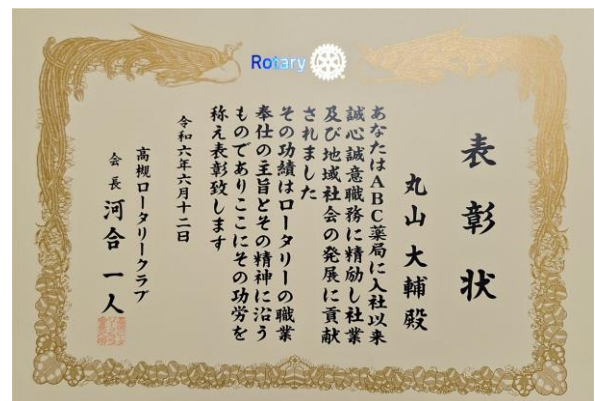 Rotary
表彰状
丸山大輔殿
あなたはABC薬局に入社以来
誠心誠意職務に精励し社業
及び地域社会の発展に貢献
されました
その功績はロータリーの職業
奉仕の主旨とその精神に沿う
ものでありここにその功労を
称え表彰致します
令和六年六月十二日
高槻ロータリークラブ
会長 河合一人